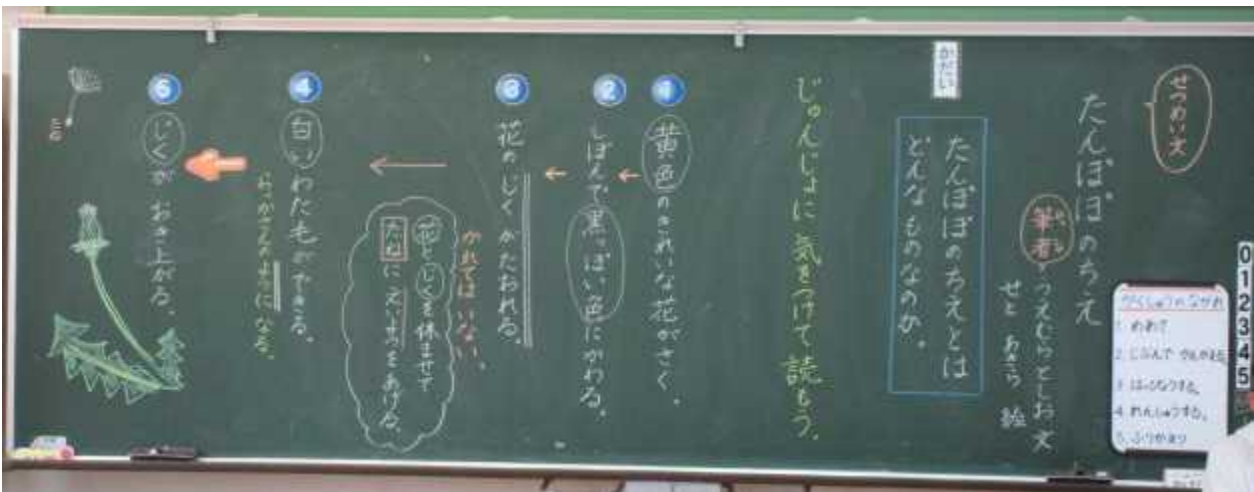 せつめい文
たんぽぽのちえ
筆者 うえむらとしお 文
せと あきら 絵
かだい
たんぽぽのちえとは
どんなものなのか。
じゅんじょに気をつけて読もう。
① 黄色のきれいな花がさく。
② しぼんで黒っぽい色にかわる。
③ 花のじくがたおれる。
かれてはいない。
花とじくを休ませて
たねにえいようをあげる。
④ 白いわた毛ができる。
らっかさんのようになる。
⑤ じくがおき上がる。
がくしゅうのながれ
1. めあて
2. じぶんでかんがえる
3. はっぴょうする。
4. れんしゅうする。
5. ふりかえり
0
1
2
3
4
5